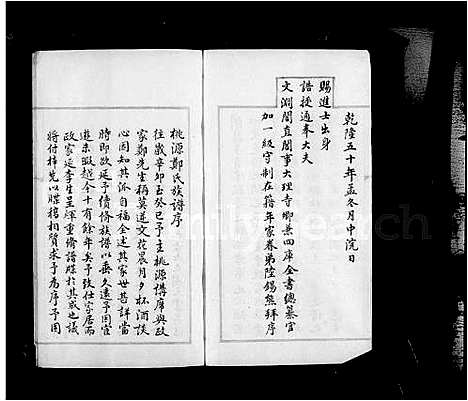 乾隆五十年孟冬月中浣日
賜進士出身
誥授通奉大夫
文淵閣直閣事大理寺卿兼四庫全書總纂官
加一級守制在籍年家眷弟陸錫熊拜序
桃源鄭氏族譜序
往歲辛卯至癸巳予主桃源講席與政
家鄭先生稱莫逆文花晨月夕杯酒談
心因知其派自福全述其家世甚詳當
時即欲延予續脩族譜以垂久遠予因官
遊未暇越今十有餘年矣予致仕家居而
政家延李生呈輝重脩譜牒於其威之議
將付梓先以謄稿相質求予為序予因
familysearch